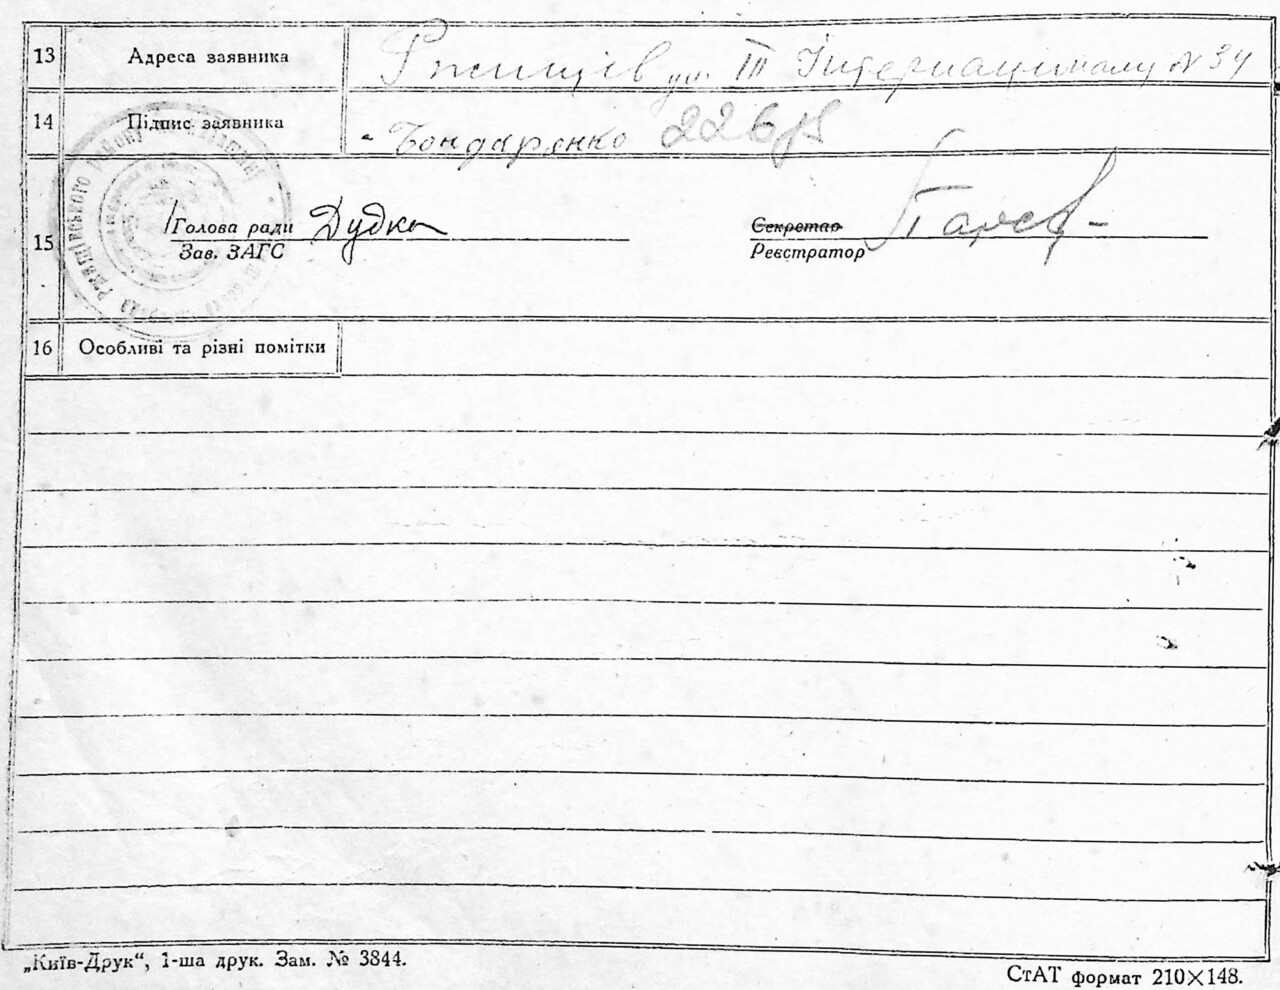 13 Адреса заявника Ржищів ул. III Інтернаціоналу № 34
14 Підпис заявника Бондаренко
15 Голова ради Дудка Секретар
Зав. ЗАГС Реєстратор
16 Особливі та різні помітки
„Київ-Друк“, 1-ша друк. Зам. № 3844.
СтАТ формат 210×148.